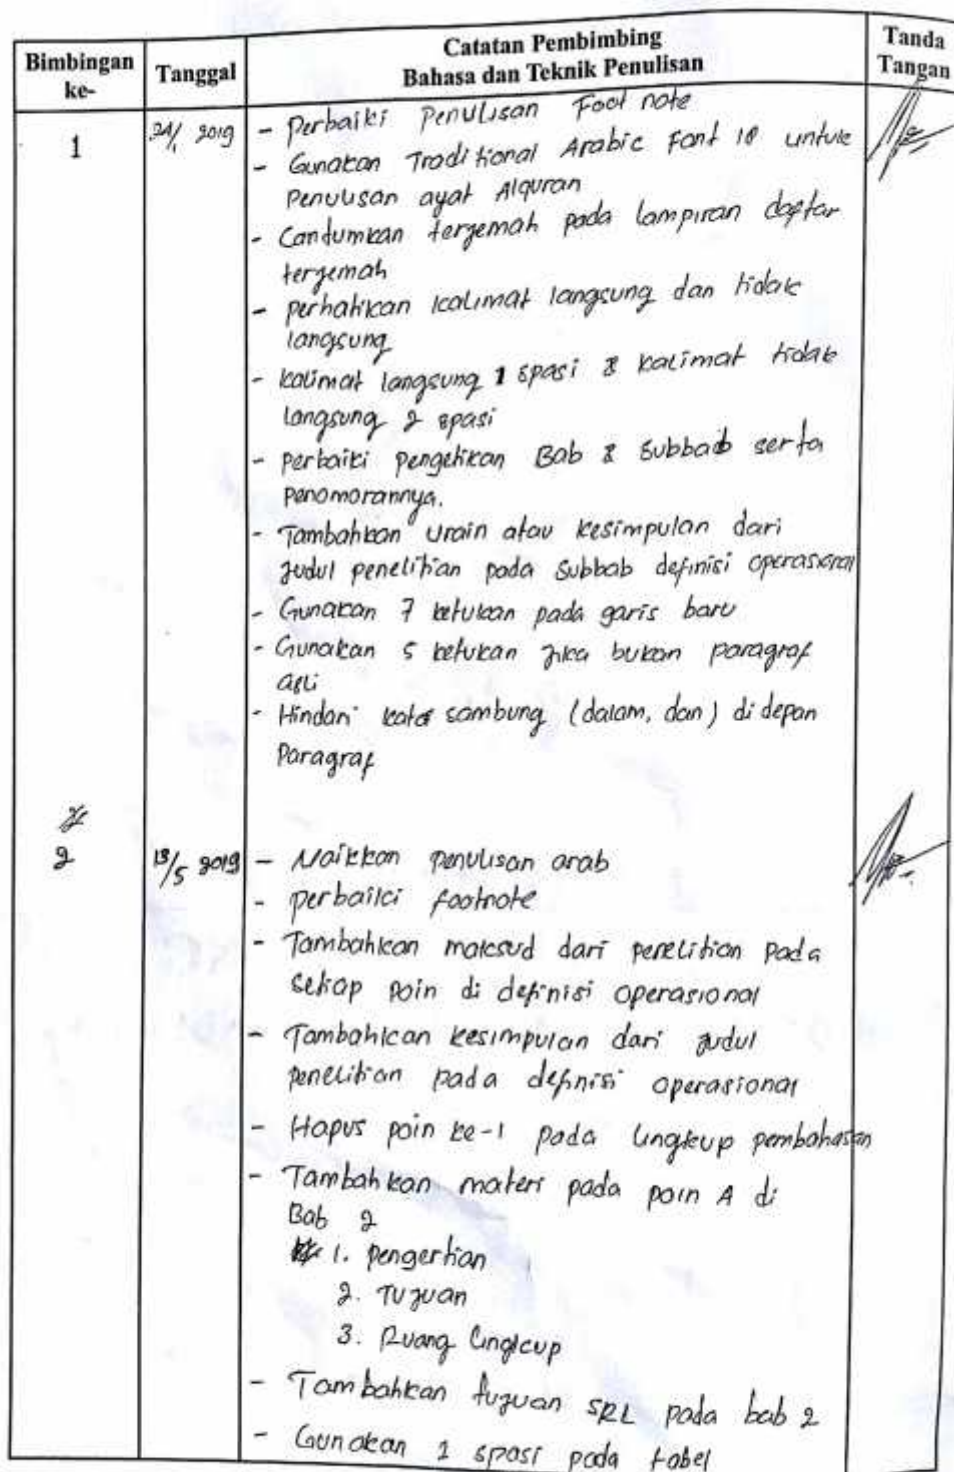 Bimbingan ke-
Tanggal
Catatan Pembimbing
Bahasa dan Teknik Penulisan
Tanda Tangan
1
2019
- Perbaiki Penulisan Foot note
- Gunakan Traditional Arabic Font 18 untuk
Penulisan ayat Alquran
- Cantumkan terjemah pada lampiran daftar
terjemah
- perhatikan kalimat langsung dan tidak
langsung
- kalimat langsung 1 spasi & kalimat tidak
langsung 2 spasi
- perbaiki pengetikan Bab & Subbab serta
penomorannya.
- Tambahkan urain atau kesimpulan dari
judul penelitian pada subbab definisi operasional
- Gunakan 7 ketukan pada garis baru
- Gunakan 5 ketukan jika bukan paragraf
asli
- Hindari kata sambung (dalam, dan) di depan
Paragraf
2
13/5 2019
- Naikkan penulisan arab
- perbaiki footnote
- Tambahkan maksud dari penelitian pada
setiap poin di definisi operasional
- Tambahkan kesimpulan dari judul
penelitian pada definisi operasional
- Hapus poin ke-1 pada lingkup pembahasan
- Tambahkan materi pada poin A di
Bab 2
1. pengertian
2. Tujuan
3. Ruang lingkup
- Tambahkan tujuan SRL pada bab 2
- Gunakan 1 spasi pada tabel